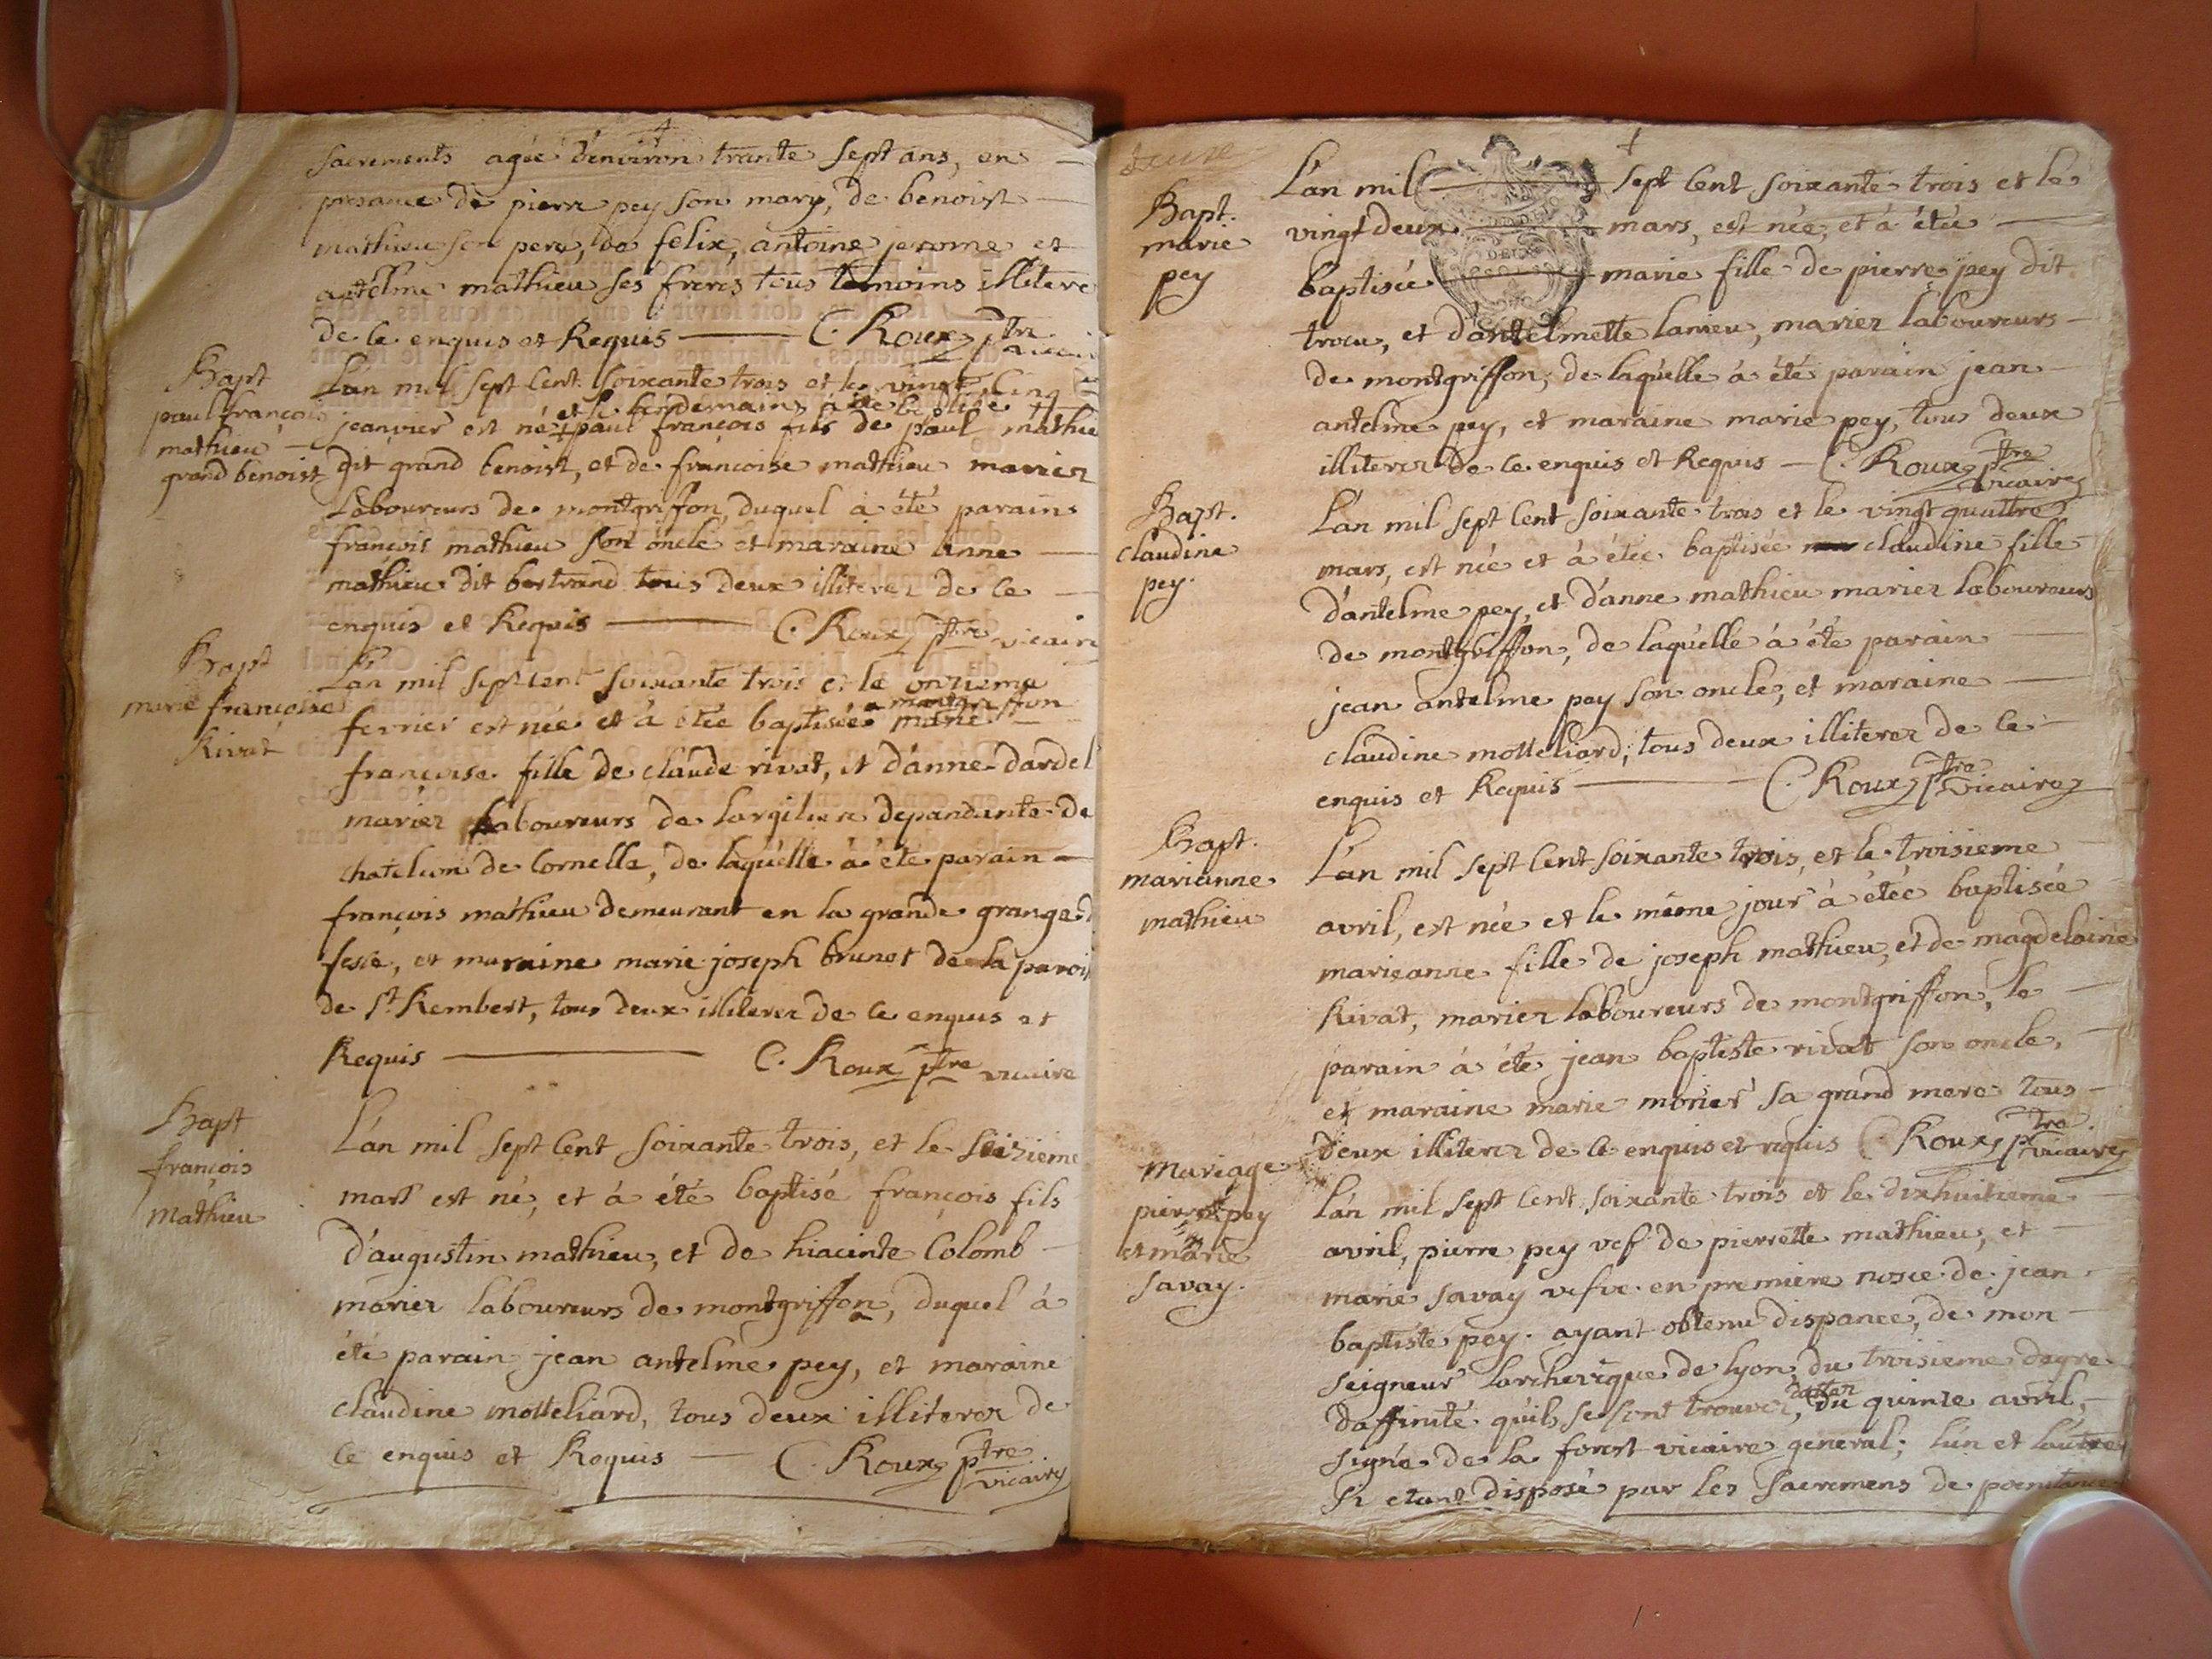 sacrements agée d'environ trante sept ans, en
presance de pierre pey son mary, de benoist
mathieu son pere, de felix, antoine jerome et
antelme mathieu ses freres tous temoins illitere
de ce enquis et Requis C. Roux ptre
Bapt
paul françois
mathieu
grand benoist
L'an mil sept Cent soixante trois et le vingt Cinq
et le lendemain à été baptisé
jeanvier est né paul françois fils de paul mathie
dit grand benoist, et de francoise mathieu mariez
Laboureurs de montgriffon, duquel à été parain
françois mathieu son oncle et maraine anne
mathieu dit bertrand tous deux illiterez de ce
enquis et Requis C. Roux ptre vicaire
Bapt
marie françoise
Rivat
L'an mil sept cent soixante trois et le onzieme
a montgriffon
fevrier est née et à étée baptisée marie
françoise fille de claude rivat, et d'anne dardel
mariez Laboureurs de largiliere dependante de
chatelion de Cornelle, de laquelle à été parain
françois mathieu demeurant en la grande grange
fessie, et maraine marie joseph brunet de la parois
de St. Rembert, tous deux illiterez de ce enquis et
Requis C. Roux ptre vicaire
Bapt
françois
Mathieu
L'an mil sept Cent soixante trois, et le seizieme
mars est né, et à été baptisé françois fils
d'augustin mathieu, et de hiacinte Colomb
mariez laboureurs de montgriffon, duquel à
été parain jean antelme pey, et maraine
claudine motteliard, tous deux illiterez de
ce enquis et Requis C. Roux ptre
vicaire
Bapt.
marie
pey
L'an mil sept Cent soixante trois et le
vingt deux mars, est née, et à étée
baptisée marie fille de pierre pey dit
trocu, et d'antelmette lanieu, mariez laboureurs
de montgriffon, de laquelle à été parain jean
antelme pey, et maraine marie pey, tous deux
illiterez de ce enquis et Requis C. Roux ptre
vicaire
Bapt.
claudine
pey.
L'an mil sept Cent soixante trois et le vingt quattre
mars, est née et à étée baptisée claudine fille
d'antelme pey, et d'anne mathieu mariez laboureurs
de montgriffon, de laquelle à été parain
jean antelme pey son oncle, et maraine
claudine motteliard, tous deux illiterez de ce
enquis et Requis C. Roux ptre
vicaire
Bapt.
marianne
mathieu
L'an mil sept Cent soixante trois, et le troisieme
avril, est née et le même jour à étée baptisée
marieanne fille de joseph mathieu, et de magdelaine
Rivat, mariez laboureurs de montgriffon, le
parain à été jean baptiste rivat son oncle,
et maraine marie morier sa grand mere tous
deux illiterez de ce enquis et requis C. Roux ptre
vicaire
Mariage
pierre pey
et marie
savay.
L'an mil sept Cent soixante trois et le dixhuitieme
avril, pierre pey vef de pierrette mathieu, et
marie savay vefve en premiere nosce de jean
baptiste pey. ayant obtenu dispance, de mon
seigneur larchevêque de lyon, du troisieme degre
datter
daffinité quils se sont trouvez, du quinze avril,
signé de la forest vicaire general; lún et lautre
Si etant disposé par les Sacremens de poenitance